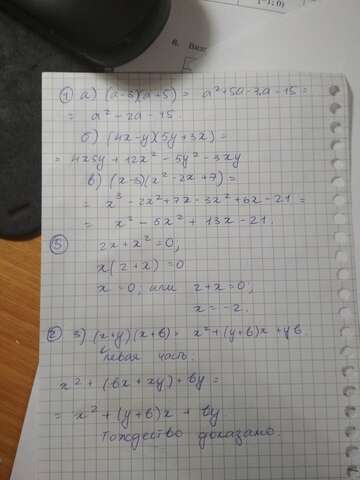 6. Вип
① а) (a-3)(a+5) = a²+5a-3a-15=
= a² - 2a - 15
б) (4x-y)(5y+3x)=
= 4x5y + 12x² - 5y² - 3xy
в) (x-3)(x²-2x+7)=
= x³ - 2x² + 7x - 3x² + 6x - 21 =
= x² - 5x² + 13x - 21.
⑤ 2x + x² = 0;
x(2+x) = 0
x = 0; или 2+x = 0;
x = -2.
② 3) (x+y)(x+b) = x² + (y+b)x + yb
Левая часть:
x² + (bx + xy) + by =
= x² + (y+b)x + by
Тождество доказано.